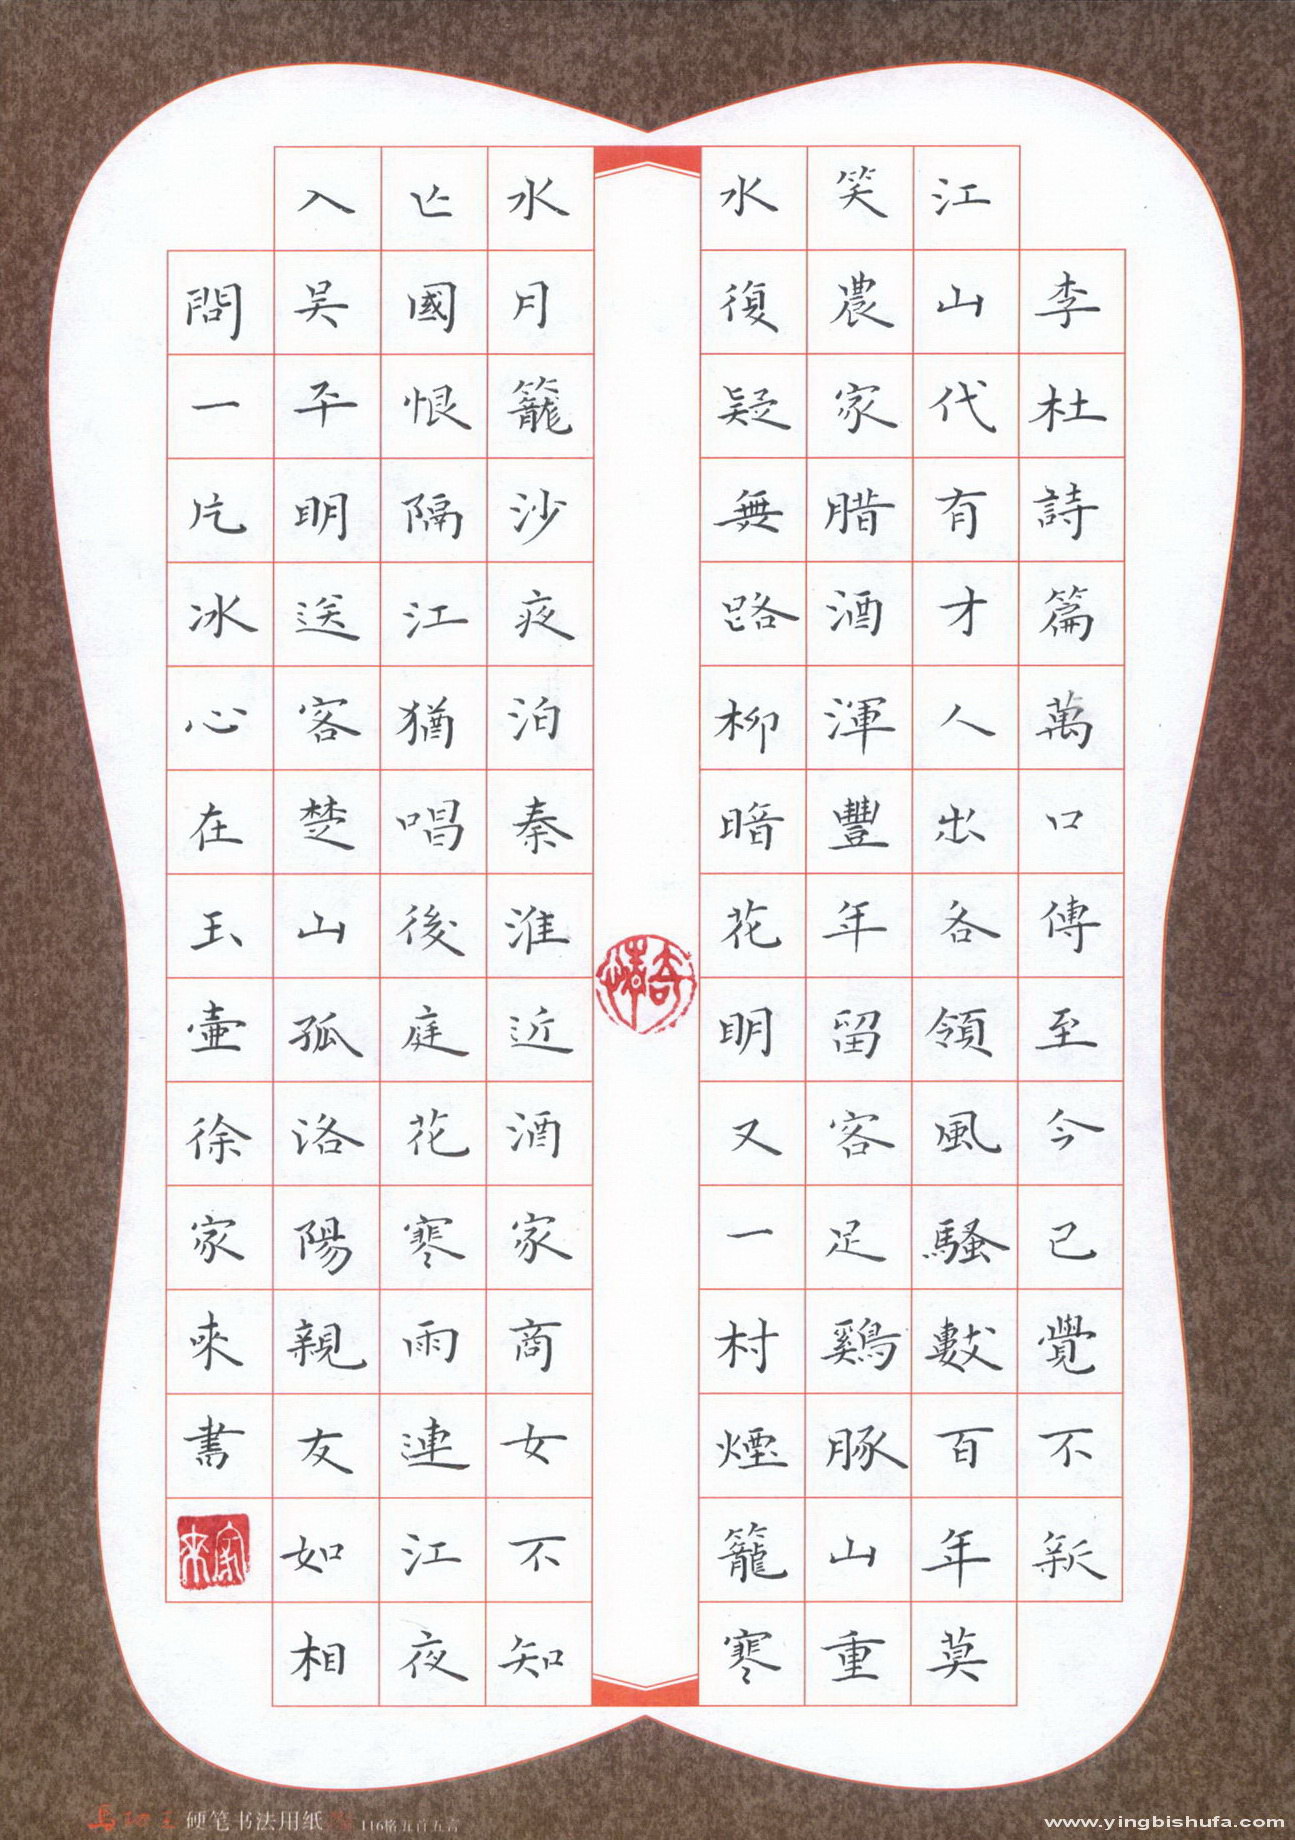 李杜詩篇萬口傳至今已覺不新
江山代有才人出各領風騷數百年莫
笑農家腊酒渾豐年留客足鷄豚山重
水復疑無路柳暗花明又一村煙籠寒
水月籠沙夜泊秦淮近酒家商女不知
亡國恨隔江猶唱後庭花寒雨連江夜
入吴平明送客楚山孤洛陽親友如相
問一片冰心在玉壺徐家來書
家來
硬笔书法用纸
116格五百五言
www.yingbishufa.com